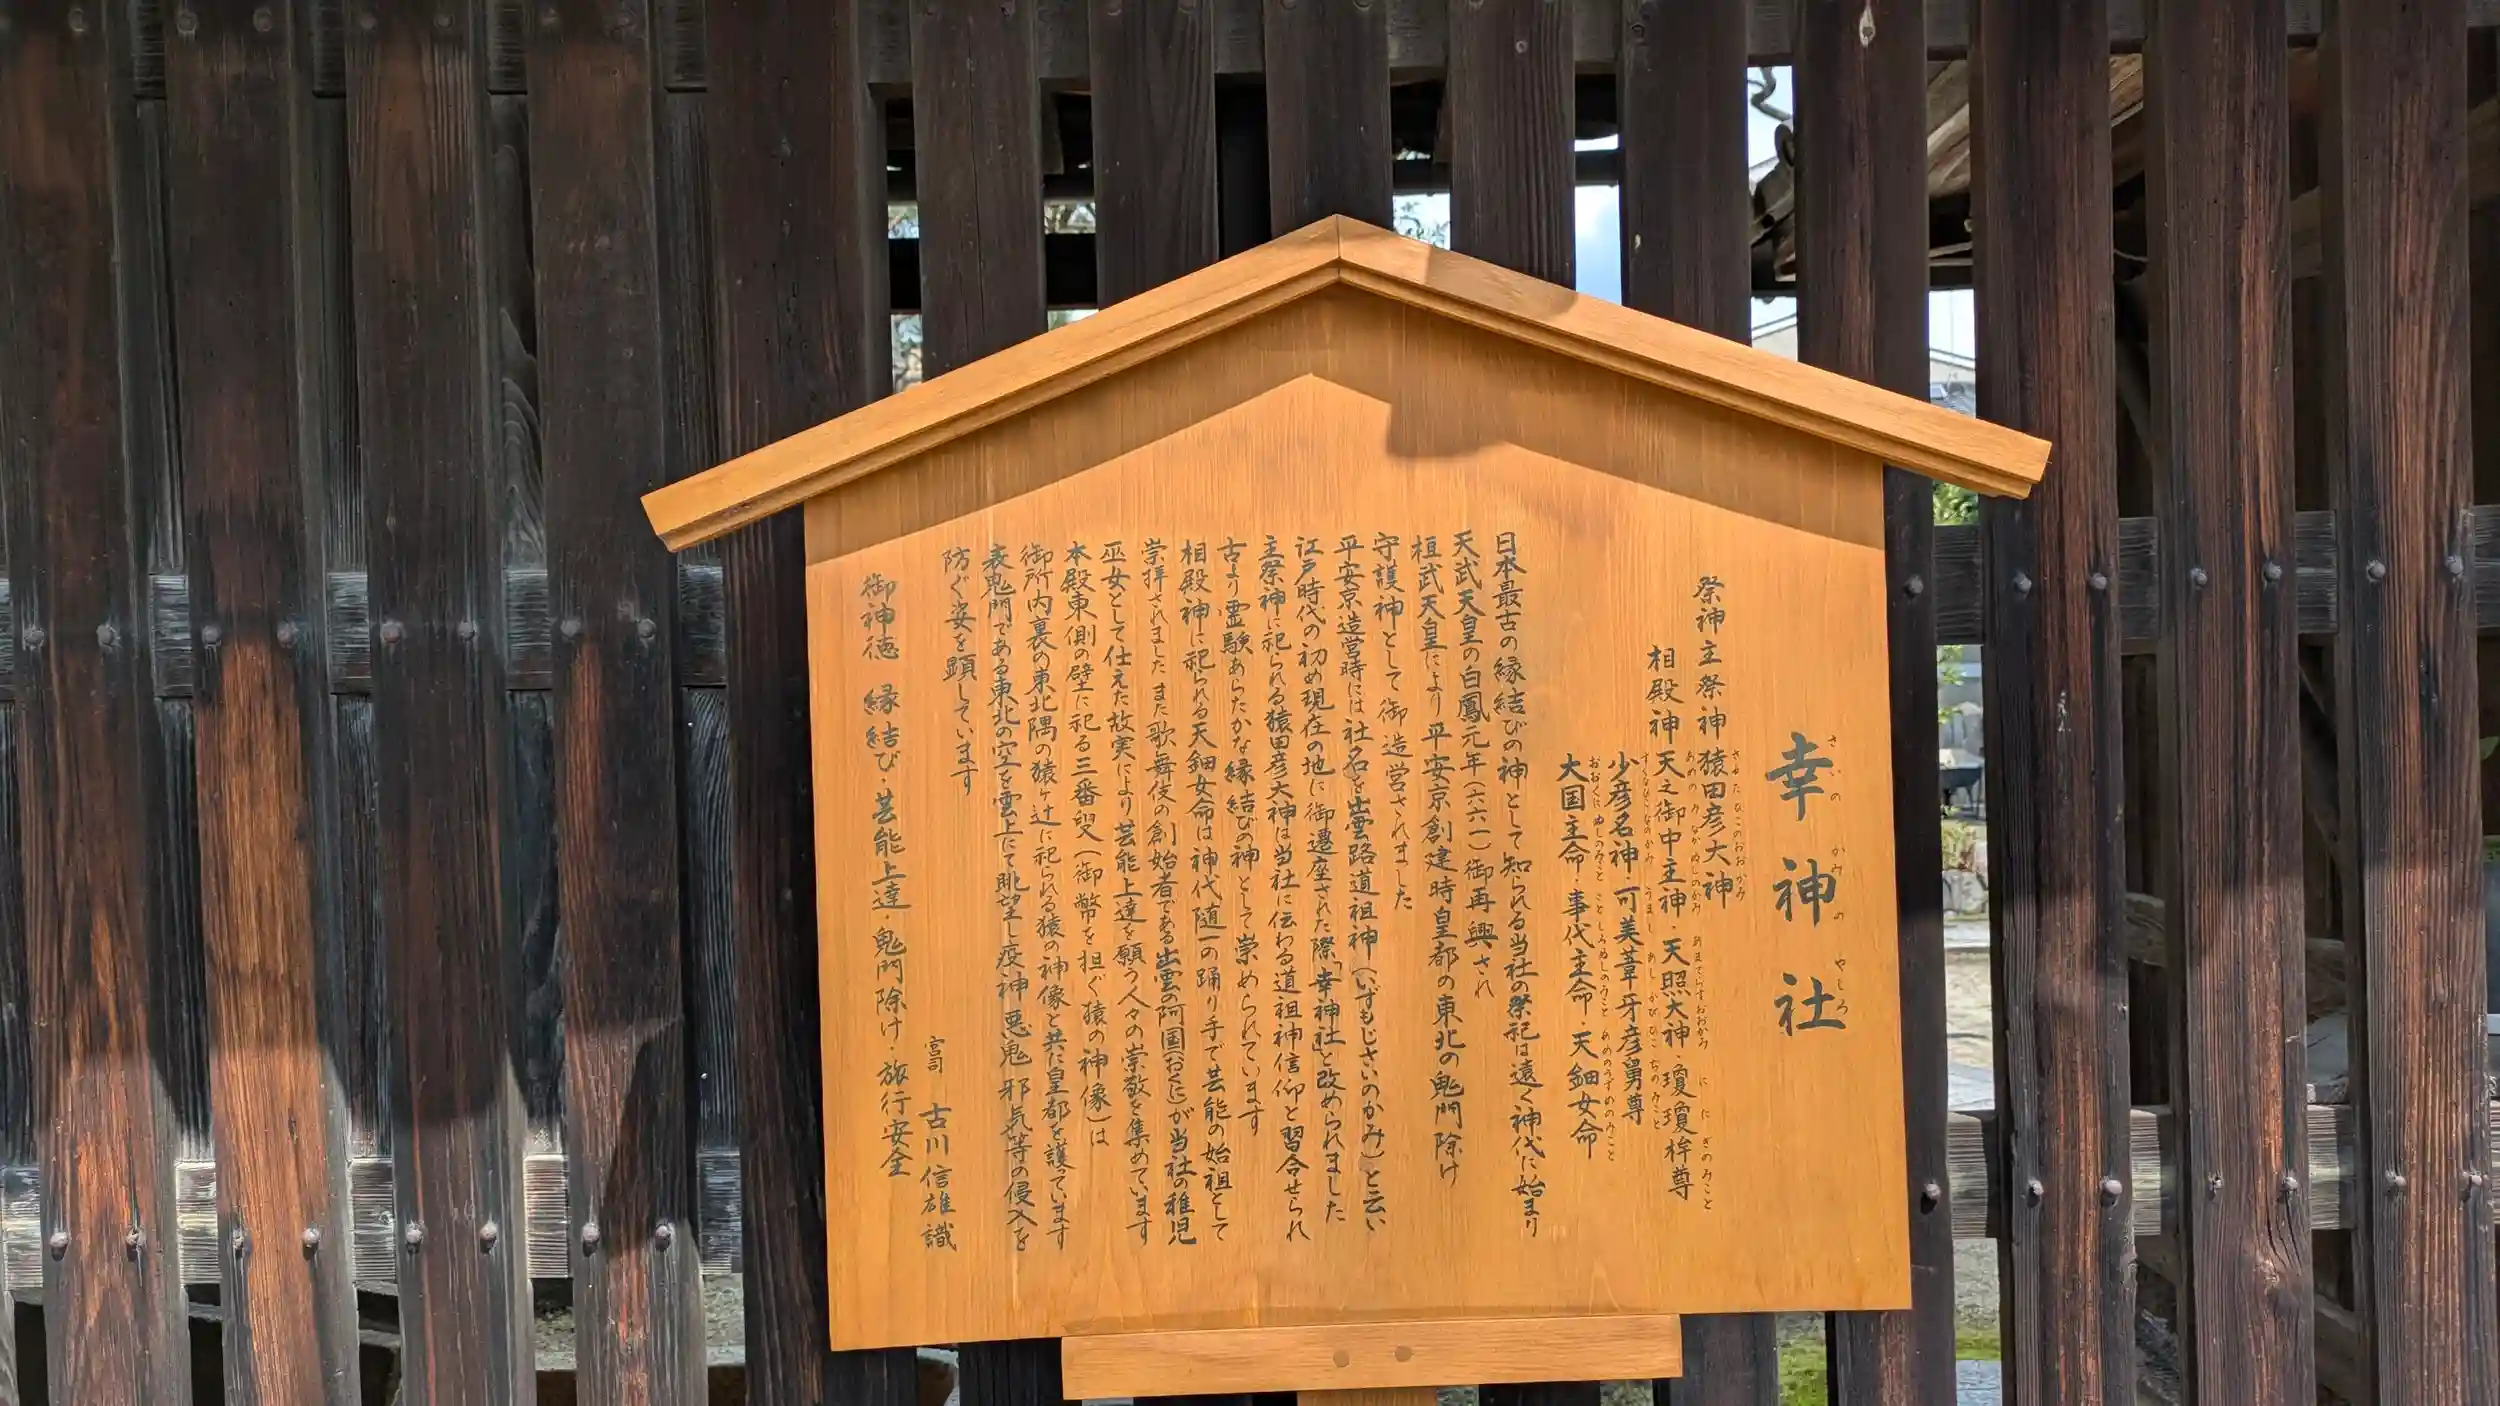 幸神社
さいのかみのやしろ
祭神 主祭神 猿田彦大神
さるたひこのおおかみ
相殿神 天之御中主神・天照大神・瓊瓊杵尊
あめのみなかぬしのかみ あまてらすおおかみ ににぎのみこと
少彦名神・可美葦牙彦舅尊
すくなひこなのかみ うましあしかびひこぢのみこと
大国主命・事代主命・天鈿女命
おおくにぬしのみこと ことしろぬしのみこと あめのうずめのみこと
日本最古の縁結びの神として知られる当社の祭祀は遠く神代に始まり
天武天皇の白鳳元年(六六一)御再興され
桓武天皇により平安京創建時皇都の東北の鬼門除け
守護神として御造営されました
平安京造営時には社名を出雲路道祖神(いずもじさいのかみ)と云い
江戸時代の初め現在の地に御遷座された際「幸神社」と改められました
主祭神に祀られる猿田彦大神は当社に伝わる道祖神信仰と習合せられ
古より霊験あらたかな縁結びの神として崇められています
相殿神に祀られる天鈿女命は神代随一の踊り手で芸能の始祖として
崇拝されました また歌舞伎の創始者である出雲の阿国(おくに)が当社の稚児
巫女として仕えた故実により芸能上達を願う人々の崇敬を集めています
本殿東側の壁に祀る三番叟(御幣を担ぐ猿の神像)は
御所内裏の東北隅の猿ヶ辻に祀られる猿の神像と共に皇都を護っています
表鬼門である東北の空を雲上にて眺望し疫神 悪鬼 邪気等の侵入を
防ぐ姿を顕しています
宮司 古川信雄 識
御神徳 縁結び・芸能上達・鬼門除け・旅行安全